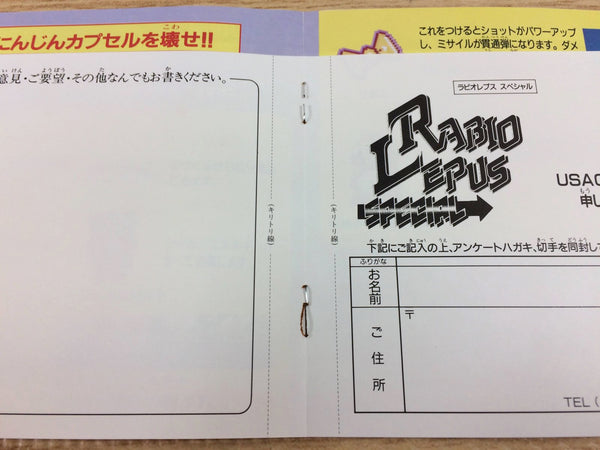 にんじんカプセルを壊せ!!
こわ
これをつけるとショットがパワーアップ
し、ミサイルが貫通弾になります。ダメ
いけん ようぼう た か
意見・ご要望・その他なんでもお書きください。
(キリトリ線)
(キリトリ線)
ラビオレプス スペシャル
RABIO
LEPUS
SPECIAL
USAG
もう
申し
かき きにゅう うえ きって どうふう
下記にご記入の上、アンケートハガキ、切手を同封して
ふりがな
お名前
〒
ご住所
TEL(